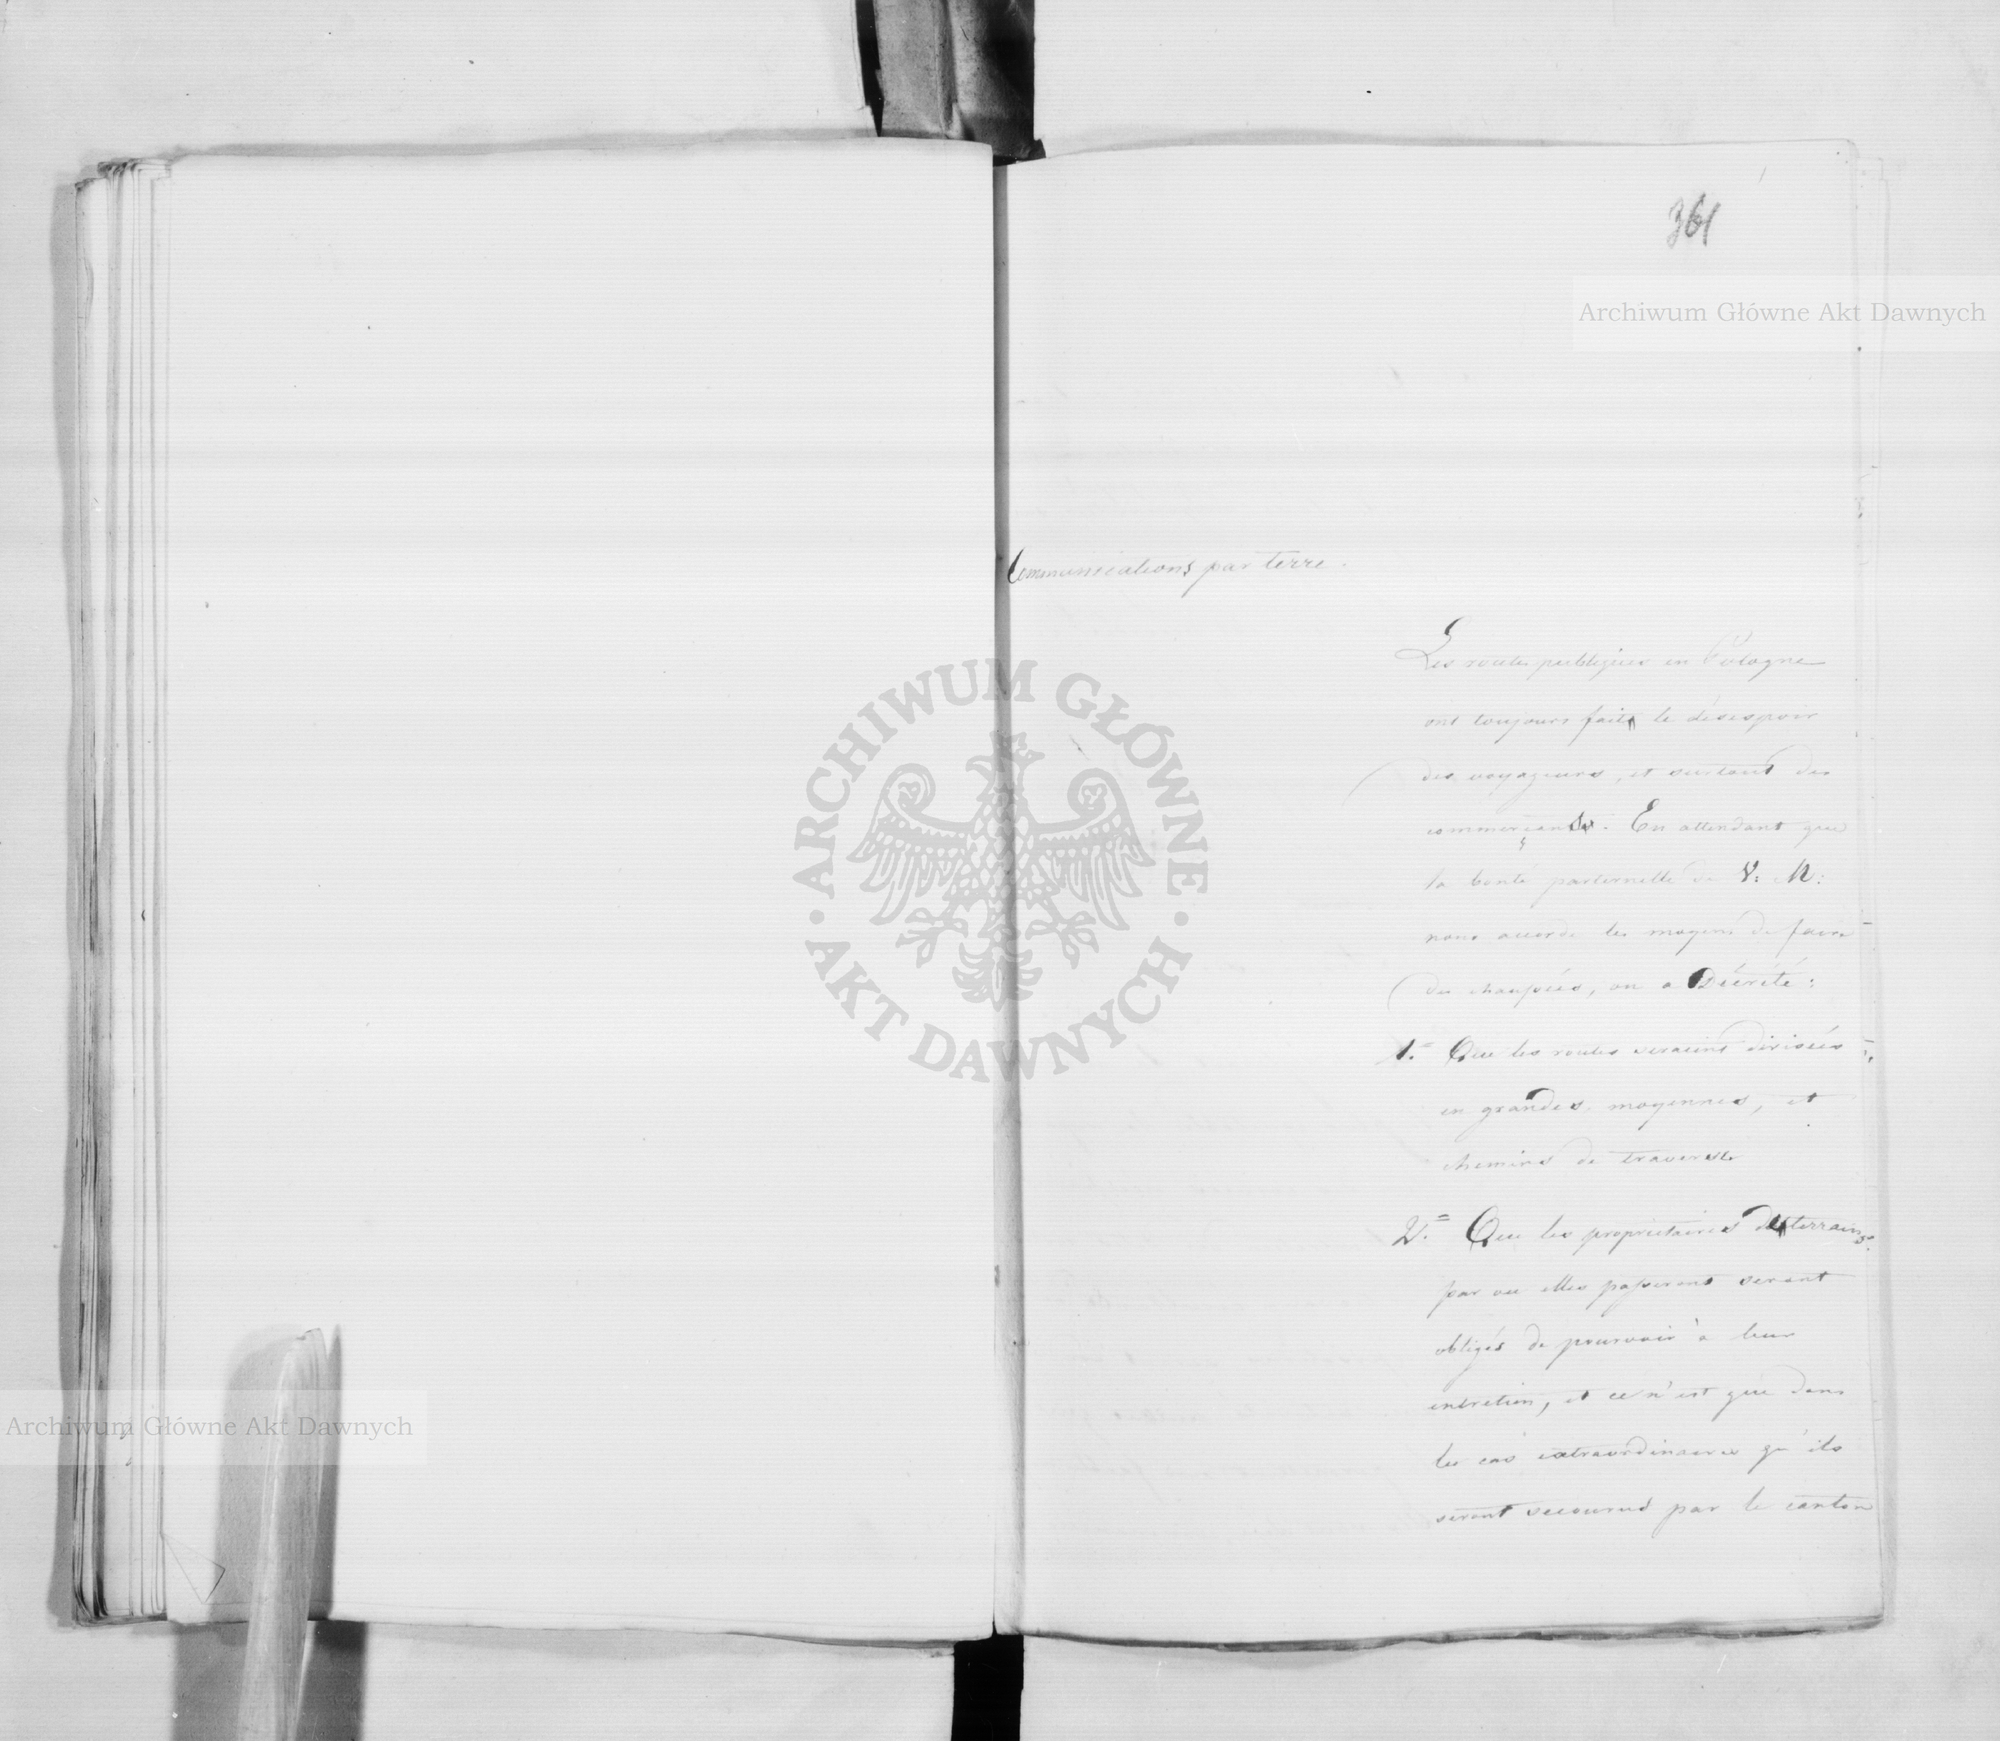 361
Archiwum Główne Akt Dawnych
Communications par terre.
Les routes publiques en Pologne
ont toujours fait le désespoir
des voyageurs, et surtout des
commerçants. En attendant que
la bonté paternelle de V: M:
nous accorde les moyens de faire
des chaussées, on a Décrété:
1.= Que les routes seraient divisées
en grandes, moyennes, et
chemins de traverse
2.= Que les propriétaires des terrains
par ou elles passeront seront
obligés de pourvoir à leur
entretien, et ce n'est que dans
les cas extraordinaires qu'ils
seront secourus par le canton
ARCHIWUM GŁÓWNE
AKT DAWNYCH
Archiwum Główne Akt Dawnych